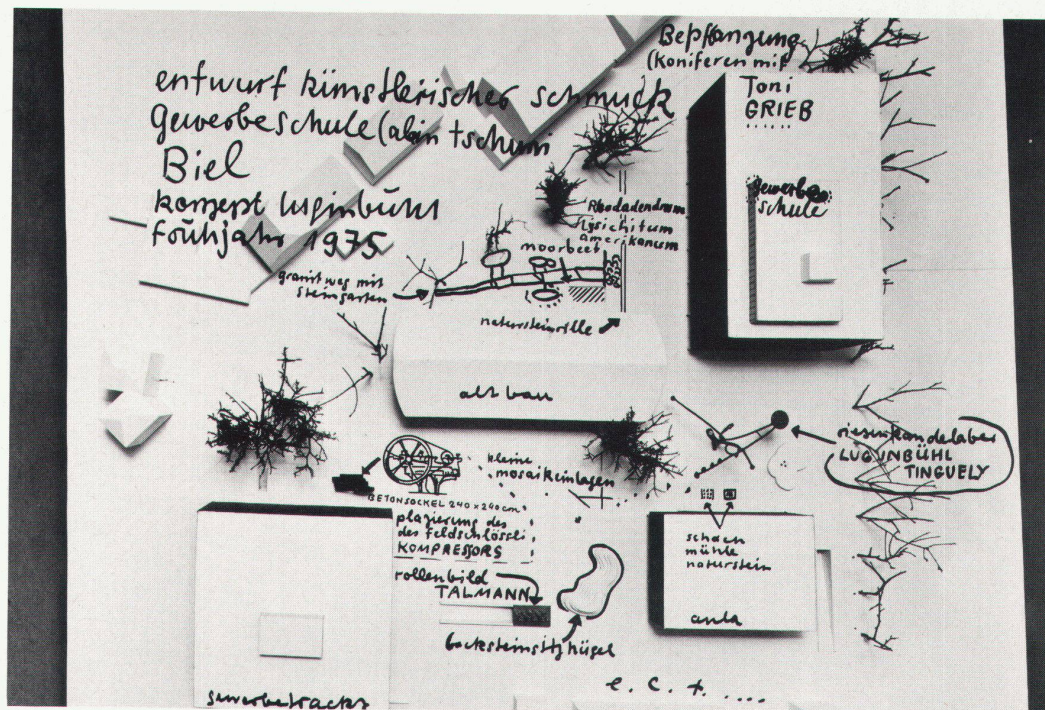 entwurf künstlerischer schmuck
gewerbeschule (alin tschumi
Biel
konzept luginbühl
frühjahr 1975
Bepflanzung
(koniferen mit
Toni
GRIEB
gewerbe
schule
Rhodadendren
lysichitum
amerikanum
moorbeet
granitweg mit
steingarten
natursteinrille
altbau
riesenkandelaber
LUGINBÜHL
TINGUELY
kleine
mosaikeinlagen
BETONSOCKEL 240 x 240 cm
plazierung des
des feldschlössli
KOMPRESSORS
schach
mühle
naturstein
rollenbild
TALMANN
aula
backsteinsitzhügel
gewerbetrackt
e.c.t. ....